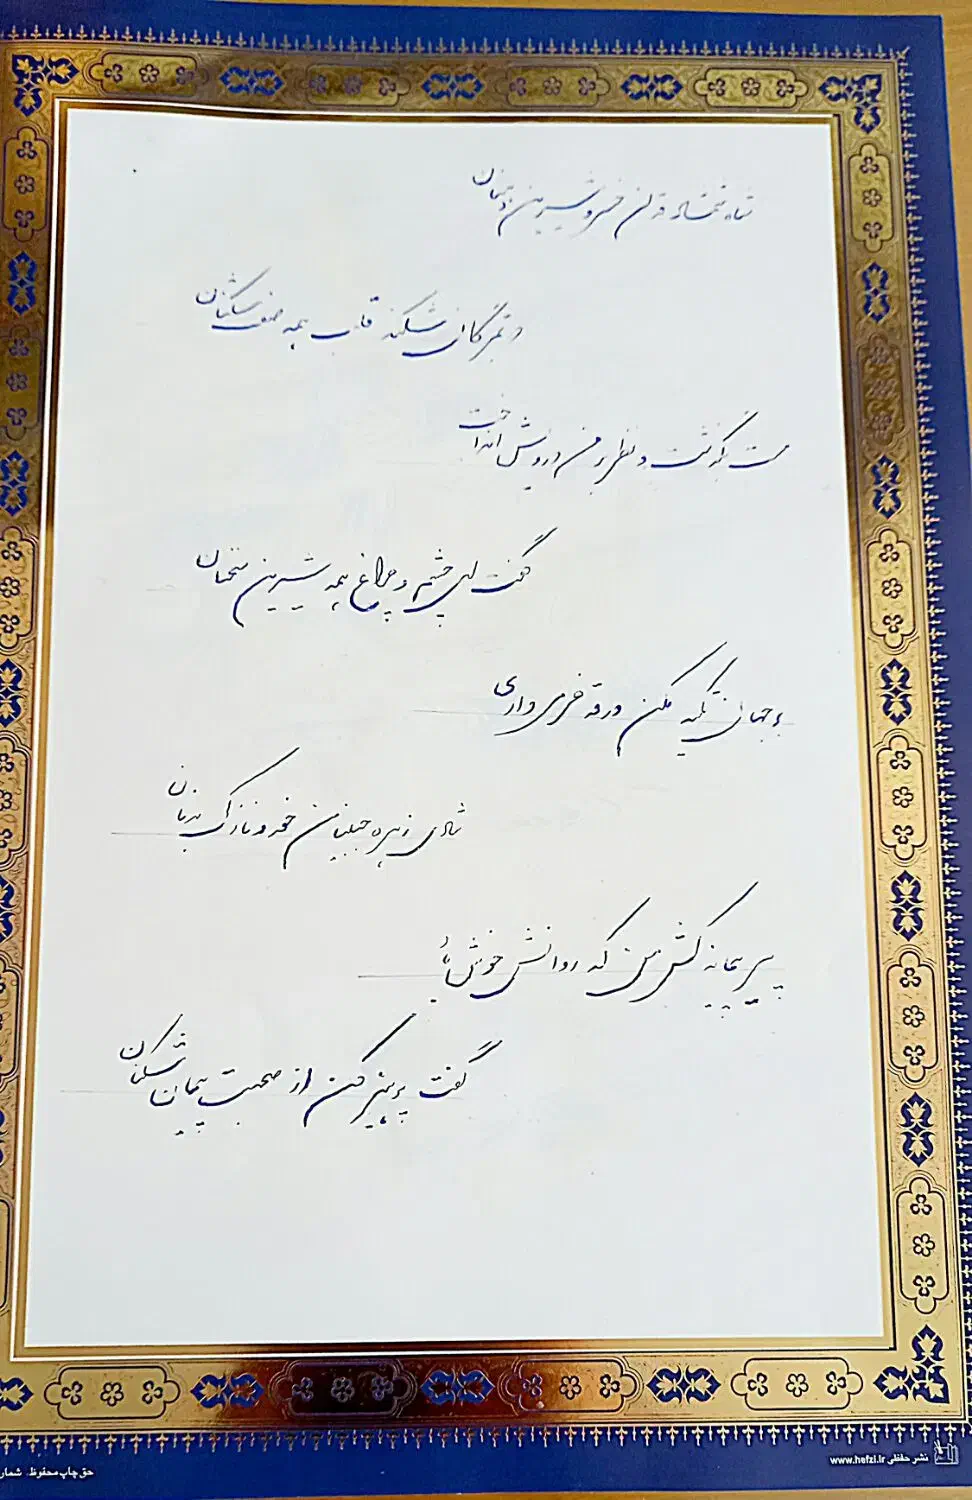 شاه شمشاد قدان خسرو شیرین دهنان
بمژگان شکند قلب همه صف شکنان
مست بگذشت و نظر بر من درویش انداخت
گفت ای چشم و چراغ همه شیرین سخنان
بر جهان تکیه مکن ور قدحی می داری
شادی زهره جبینان خور و نازک بدنان
پیر پیمانه کش من که روانش خوش باد
گفت پرهیز کن از صحبت پیمان شکنان
نشر حفظی www.hefzi.ir
حق چاپ محفوظ